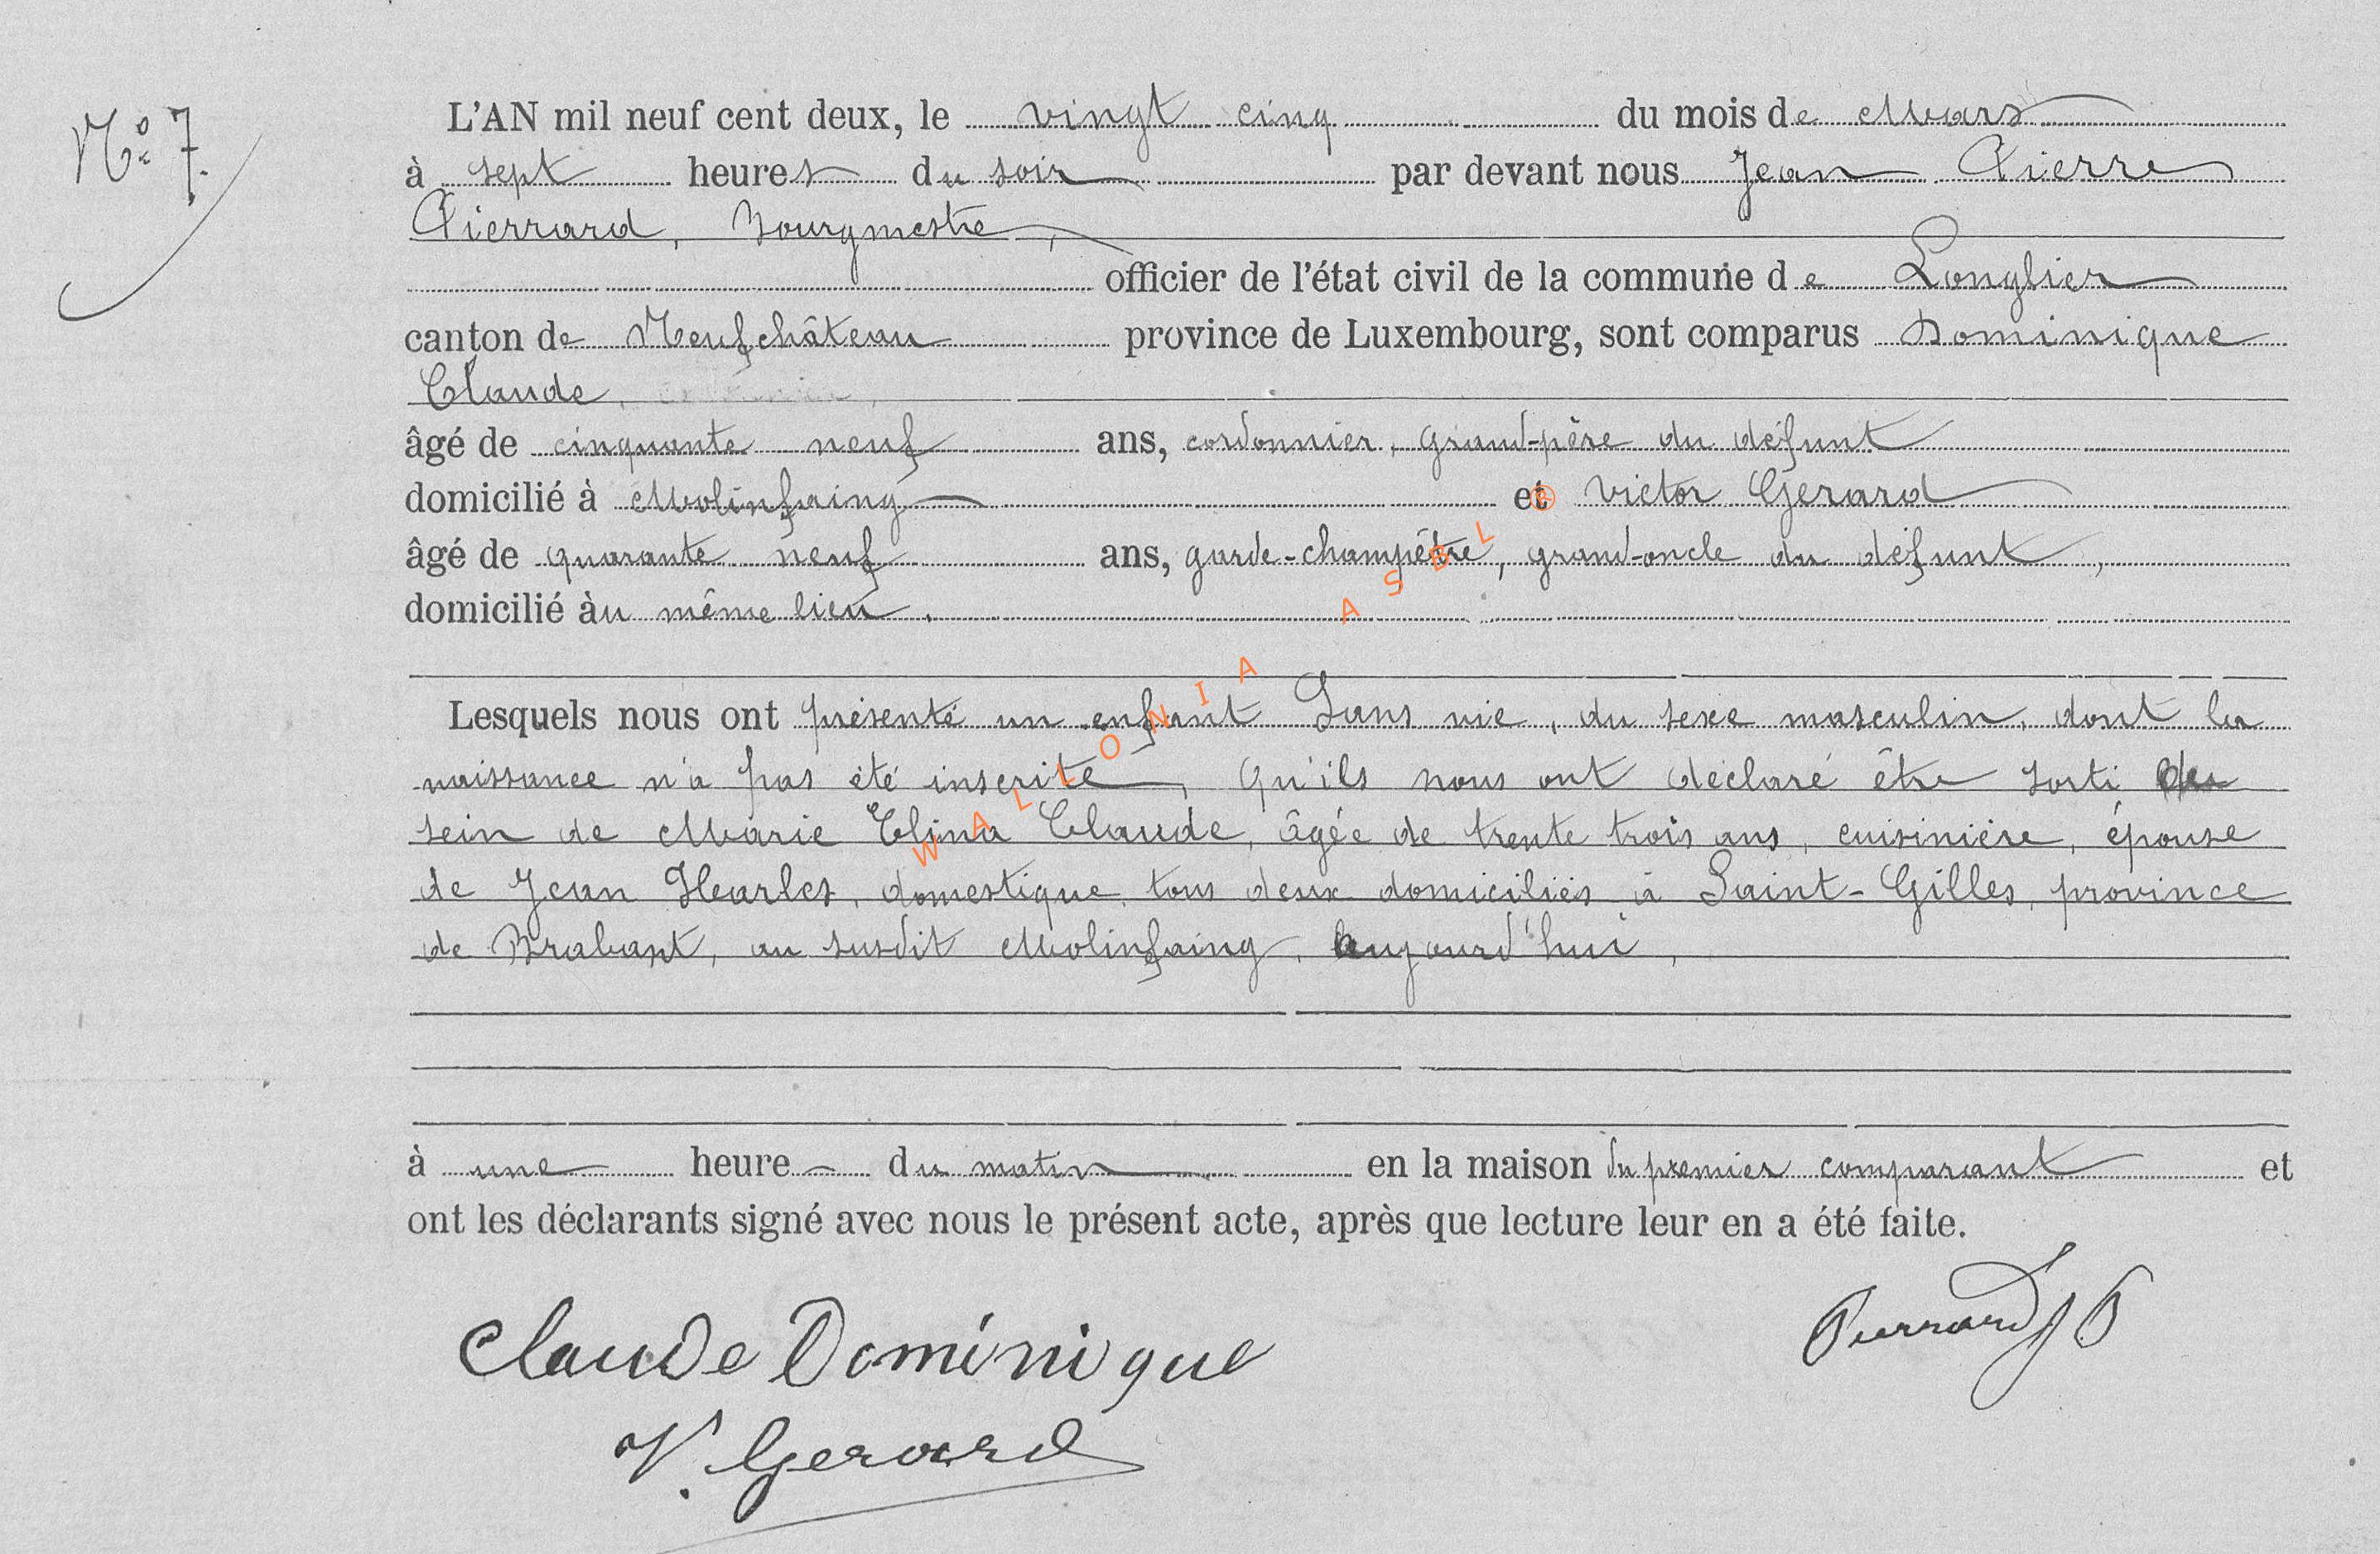 N.º 7.
L'AN mil neuf cent deux, le vingt cinq du mois de Mars
à sept heures du soir par devant nous Jean Pierre
Pierrard, Bourgmestre,
officier de l'état civil de la commune de Longlier
canton de Neufchâteau province de Luxembourg, sont comparus Dominique
Claude,
âgé de cinquante neuf ans, cordonnier, grand-père du défunt
domicilié à Molinfaing et Victor Gerard
âgé de quarante neuf ans, garde-champêtre, grand-oncle du défunt,
domicilié àu même lieu.
Lesquels nous ont présenté un enfant Sans vie, du sexe masculin, dont la
naissance n'a pas été inscrite, qu'ils nous ont déclaré être sorti du
sein de Marie Elina Claude, âgée de trente trois ans, cuisinière, épouse
de Jean Harles, domestique, tous deux domiciliés à Saint-Gilles, province
de Brabant, au susdit Molinfaing, aujourd'hui,
à une heure du matin en la maison du premier comparant et
ont les déclarants signé avec nous le présent acte, après que lecture leur en a été faite.
Claude Dominique
Pierrard JP
V. Gerard
WALLONIA ASBL ®